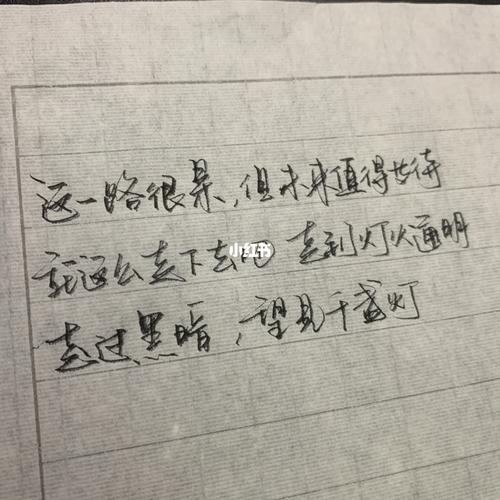 这一路很累,但未来值得共待
就这么走下去吧 走到灯火通明
小红书
走过黑暗,望见千盏灯